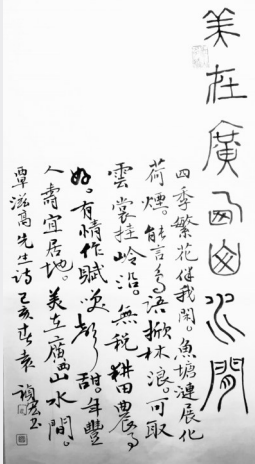 美在廣西山水間
四季繁花伴我閑。魚塘漣展化
荷煙。能言鳥語掀林浪。可取
雲裳挂嶺沿。無税耕田農事
好。有情作賦甜。年豐
人壽宜居地。美在廣西山水間。
覃滋高先生诗 己亥春袁